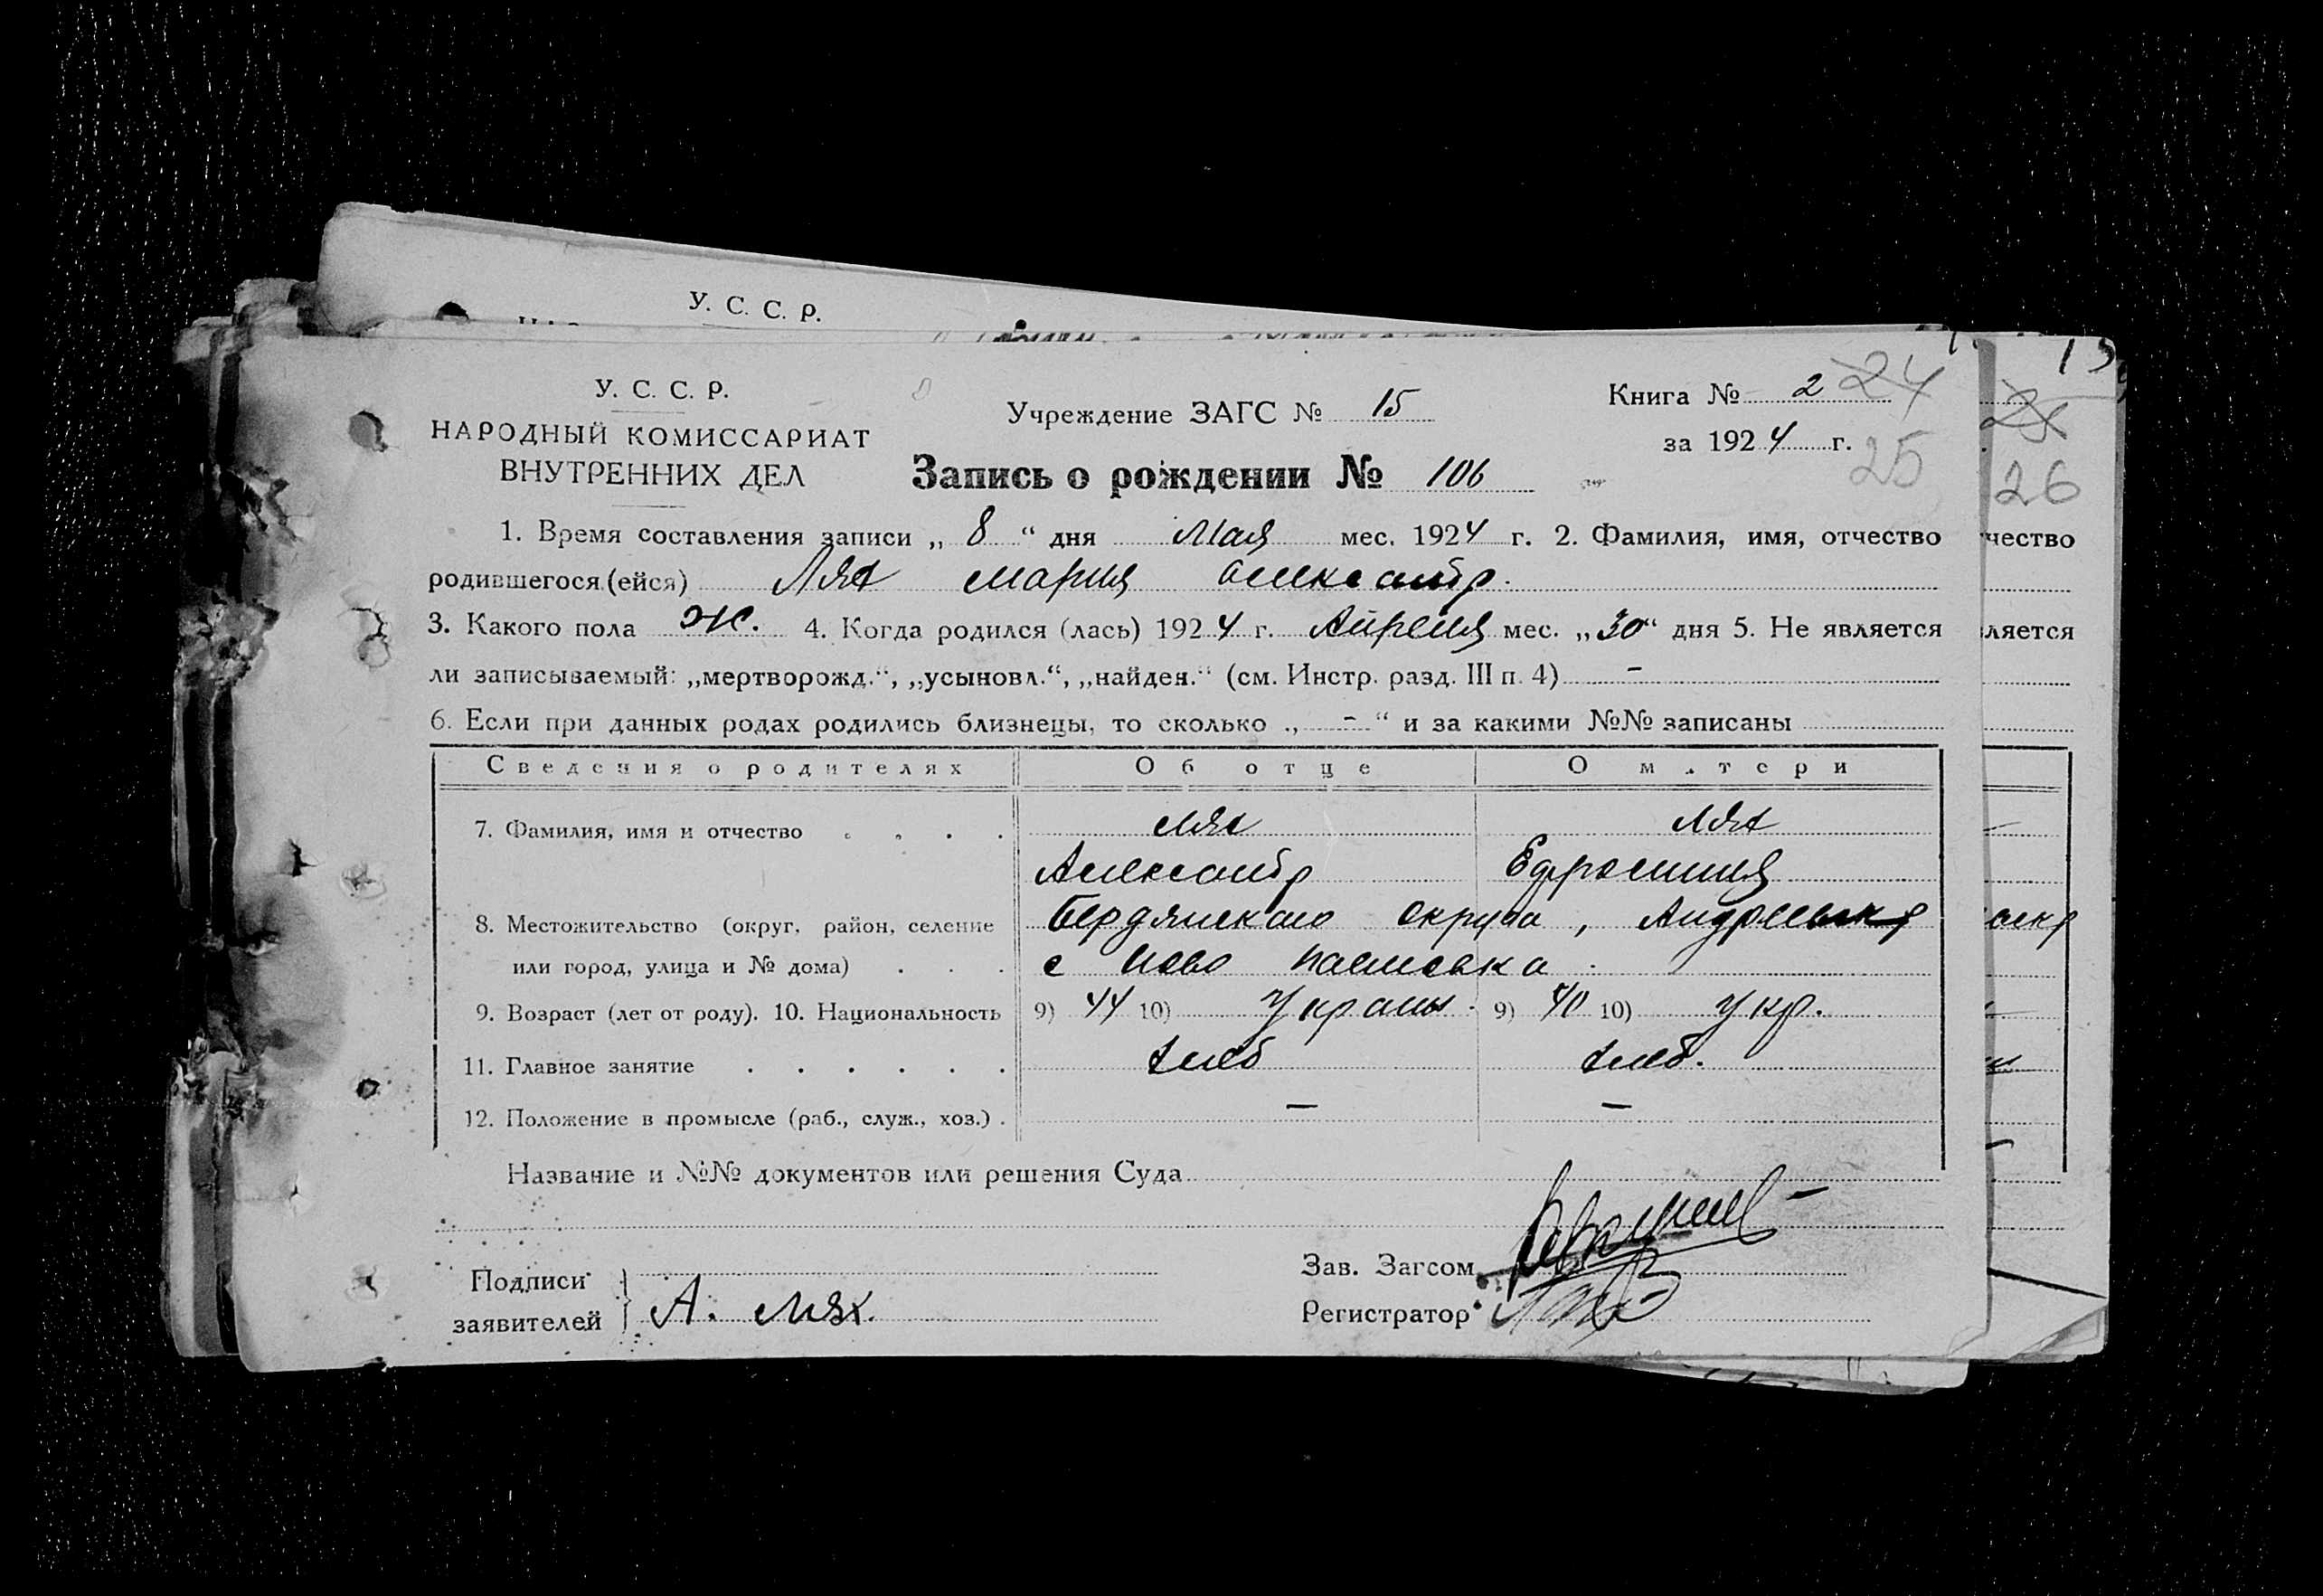 У. С. С. Р.
У. С. С. Р.
НАРОДНЫЙ КОМИССАРИАТ
ВНУТРЕННИХ ДЕЛ
Учреждение ЗАГС № 15
Книга № 2 24
за 1924 г. 25
26
Запись о рождении № 106
1. Время составления записи „ 8 “ дня Мая мес. 1924 г. 2. Фамилия, имя, отчество
чество
родившегося (ейся) Лях Мария Александр.
3. Какого пола Ж. 4. Когда родился (лась) 1924 г. Апреля мес. „30“ дня 5. Не является
ляется
ли записываемый: „мертворожд.“, „усыновл.“, „найден.“ (см. Инстр. разд. III п. 4) -
6. Если при данных родах родились близнецы, то сколько „ - “ и за какими №№ записаны
Сведения о родителях Об отце О матери
7. Фамилия, имя и отчество . . . . Лях Лях
Александр Ефросиния
8. Местожительство (округ, район, селение Бердянского округа, Андреевск р
или город, улица и № дома) . . . с Ново Павловка.
9. Возраст (лет от роду). 10. Национальность 9) 44 10) Украины. 9) 40 10) Укр.
11. Главное занятие . . . . . . хлеб хлеб.
12. Положение в промысле (раб., служ., хоз.) . — —
Название и №№ документов или решения Суда
Подписи
заявителей } А. Лях.
Зав. Загсом
Регистратор